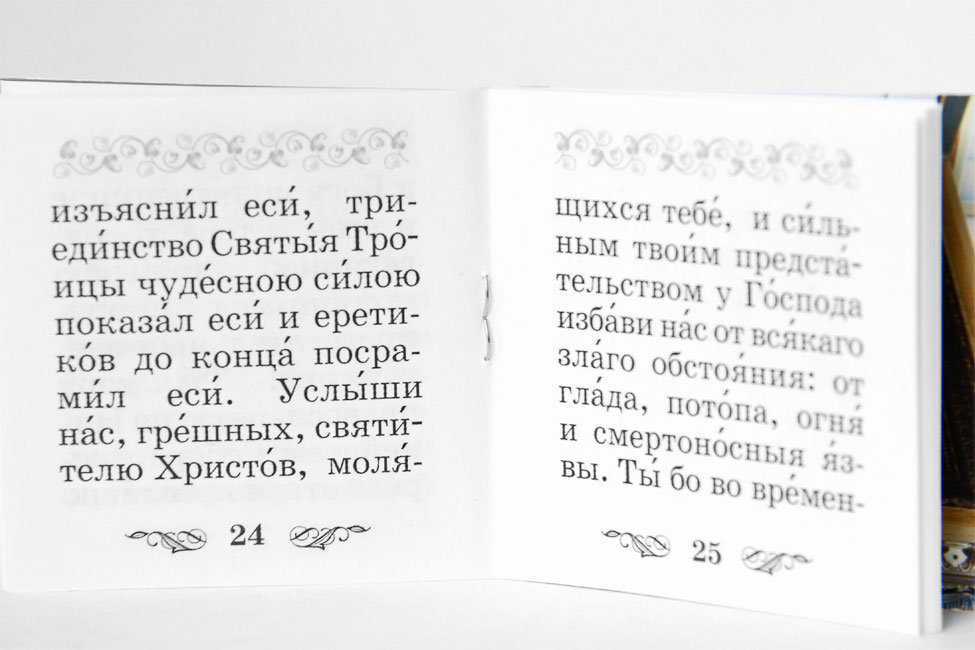 изъясни́л еси́, три-
еди́нство Святы́я Тро́-
ицы чуде́сною си́лою
показа́л еси́ и ерети-
ко́в до конца́ посра-
ми́л еси́. Услы́ши
на́с, гре́шных, святи́-
телю Христо́в, моля́-
24
щихся тебе́, и си́ль-
ным твои́м предста́-
тельством у Го́спода
изба́ви на́с от вся́каго
зла́го обстоя́ния: от
гла́да, пото́па, огня́
и смертоно́сныя я́з-
вы. Ты́ бо во вре́мен-
25